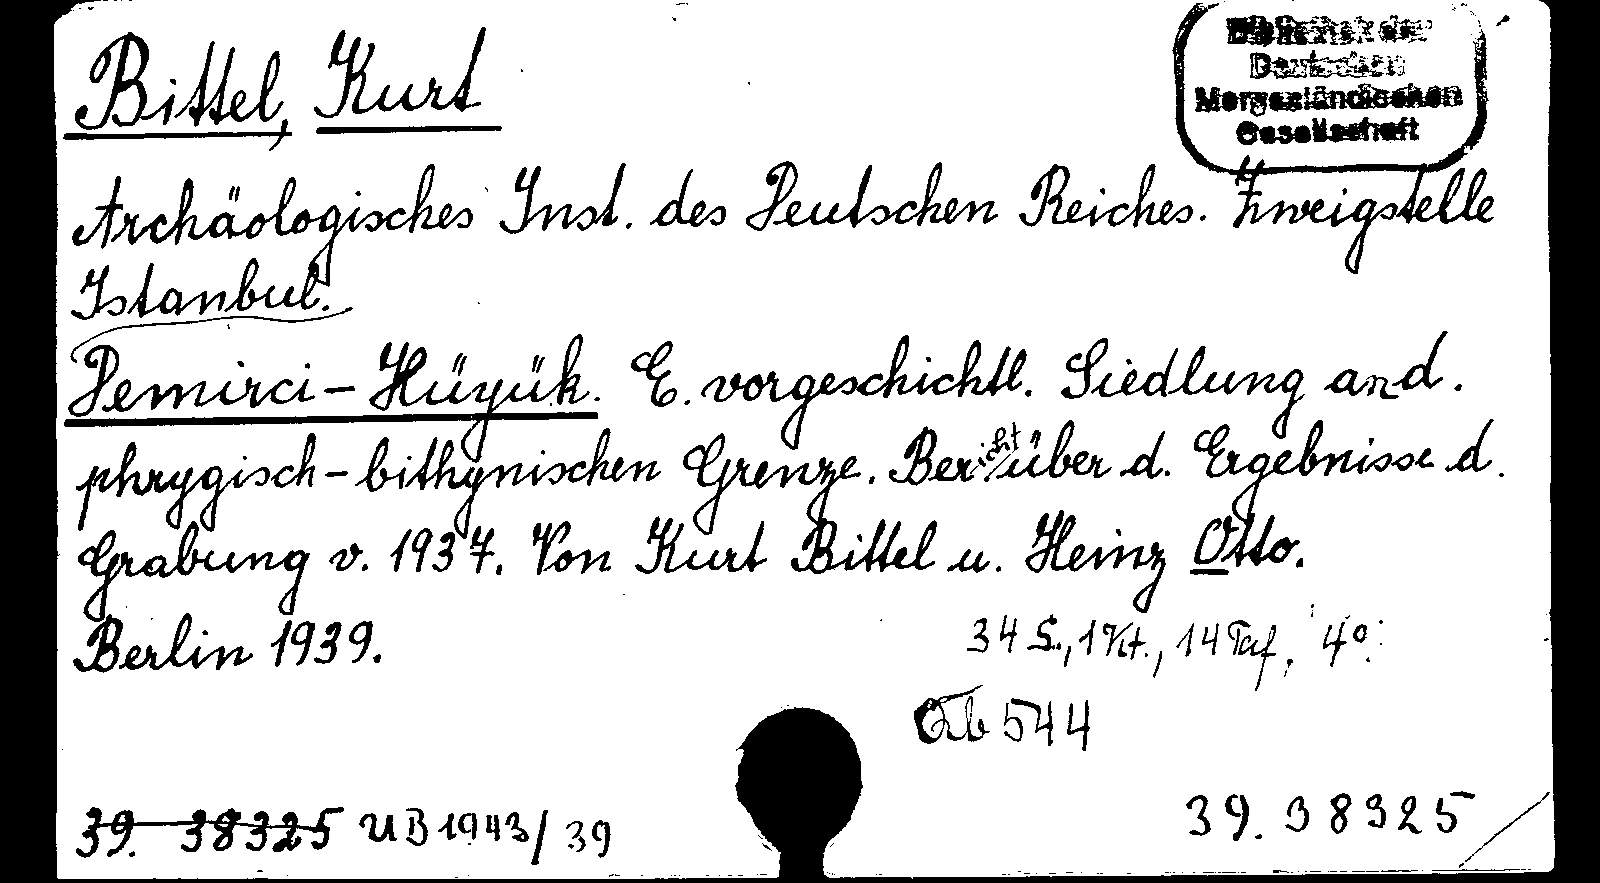 Bittel, Kurt
Bibliothek der
Deutschen
Morgenländischen
Gesellschaft
Archäologisches Inst. des Deutschen Reiches. Zweigstelle
Istanbul.
Demirci-Hüyük. E. vorgeschichtl. Siedlung an d.
phrygisch-bithynischen Grenze. Bericht über d. Ergebnisse d.
Grabung v. 1937. Von Kurt Bittel u. Heinz Otto.
Berlin 1939.
34 S., 1 Kt., 14 Taf. 4°.
Qb 544
39. 38325 UB 1943/39
39. 38325